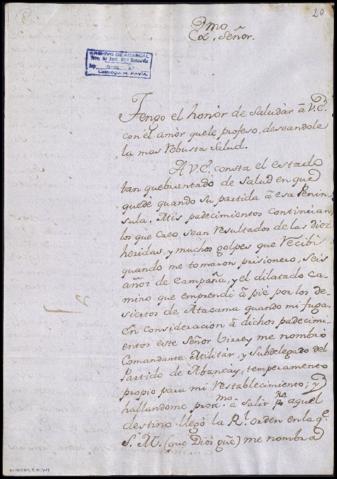 20
Exmo
Señor.
Tengo el honor de Saludar â V.E.
con el amor que le profeso, deseandole
la mas robusta Salud.
A V.E. consta el estado
tan quebrantado de Salud en que
quedé quando su partida â esa Penin
sula. Mis padecimientos continúan,
los que creo sean resultados de las diez
heridas, y muchos golpes que recibí
quando me tomaron prisionero, seis
años de Campaña, y el dilatado ca
mino que emprendí â pie por los de
siertos de Atacama quando mi fuga.
En consideracion â dichos padecimi
entos este Señor Virrey me nombró
Comandante Militar, y Subdelegado del
Partido de Abancay, temperamento
propio para mi restablecimiento; y
hallandome proxmo. a salir pa. aquel
destino llegó la Rl. Orden en la qe.
S. M. (que Dios gue) me nombra